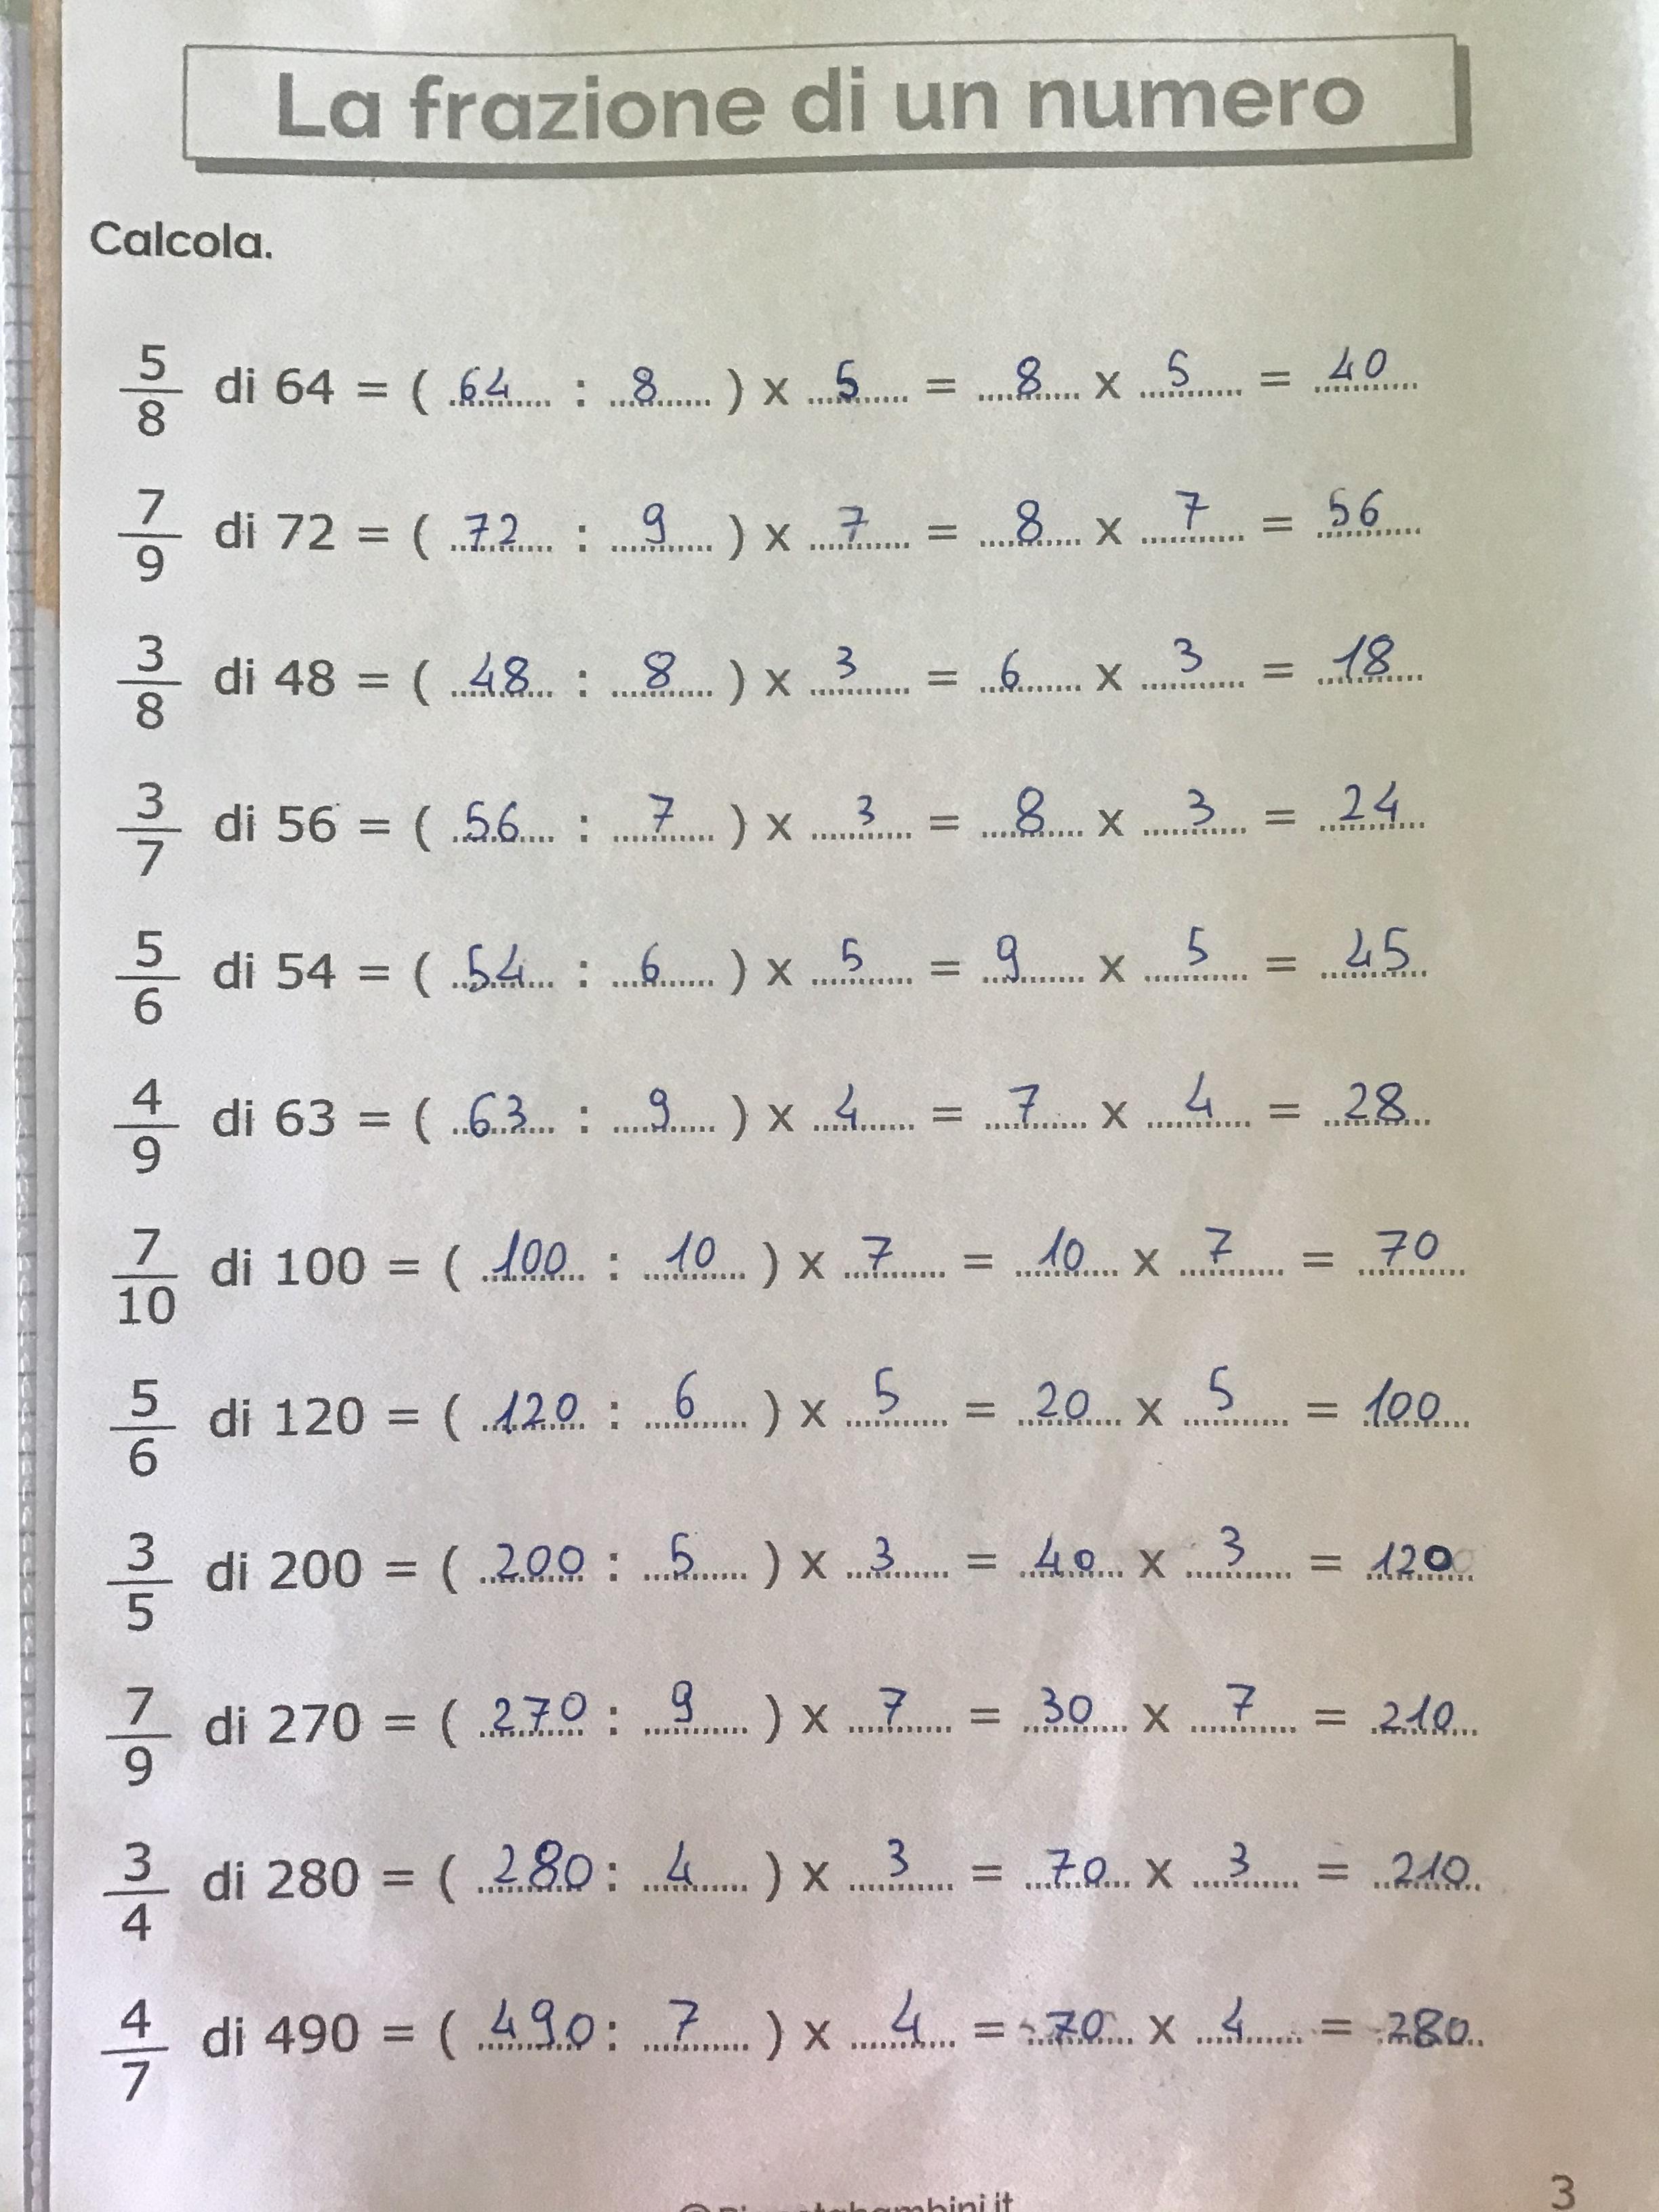 La frazione di un numero
Calcola.
5/8 di 64 = ( 64 : 8 ) x 5 = 8 x 5 = 40
7/9 di 72 = ( 72 : 9 ) x 7 = 8 x 7 = 56
3/8 di 48 = ( 48 : 8 ) x 3 = 6 x 3 = 18
3/7 di 56 = ( 56 : 7 ) x 3 = 8 x 3 = 24
5/6 di 54 = ( 54 : 6 ) x 5 = 9 x 5 = 45
4/9 di 63 = ( 63 : 9 ) x 4 = 7 x 4 = 28
7/10 di 100 = ( 100 : 10 ) x 7 = 10 x 7 = 70
5/6 di 120 = ( 120 : 6 ) x 5 = 20 x 5 = 100
3/5 di 200 = ( 200 : 5 ) x 3 = 40 x 3 = 120
7/9 di 270 = ( 270 : 9 ) x 7 = 30 x 7 = 210
3/4 di 280 = ( 280 : 4 ) x 3 = 70 x 3 = 210
4/7 di 490 = ( 490 : 7 ) x 4 = 70 x 4 = 280
3